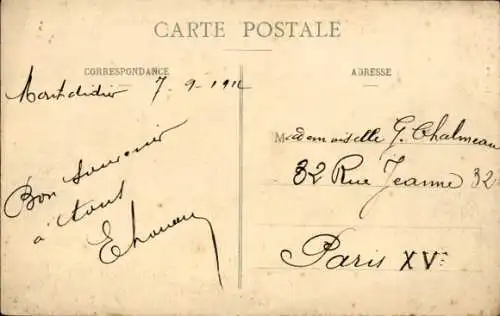 CARTE POSTALE
CORRESPONDANCE
ADRESSE
Montdidier 7-9-1912
Bon souvenir
à tous
Mademoiselle G. Chalmeau
32 Rue Jeanne 32
Paris XVe